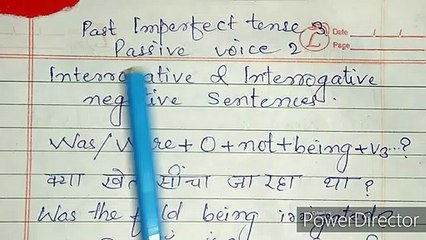 Past Imperfect tense 3
Passive voice 2
L
Date
Page
Interrogative & Interrogative
negative Sentences.
Was/Were + O + not + being + v3...?
क्या खेत सींचा जा रहा था?
Was the field being irrigated?
PowerDirector